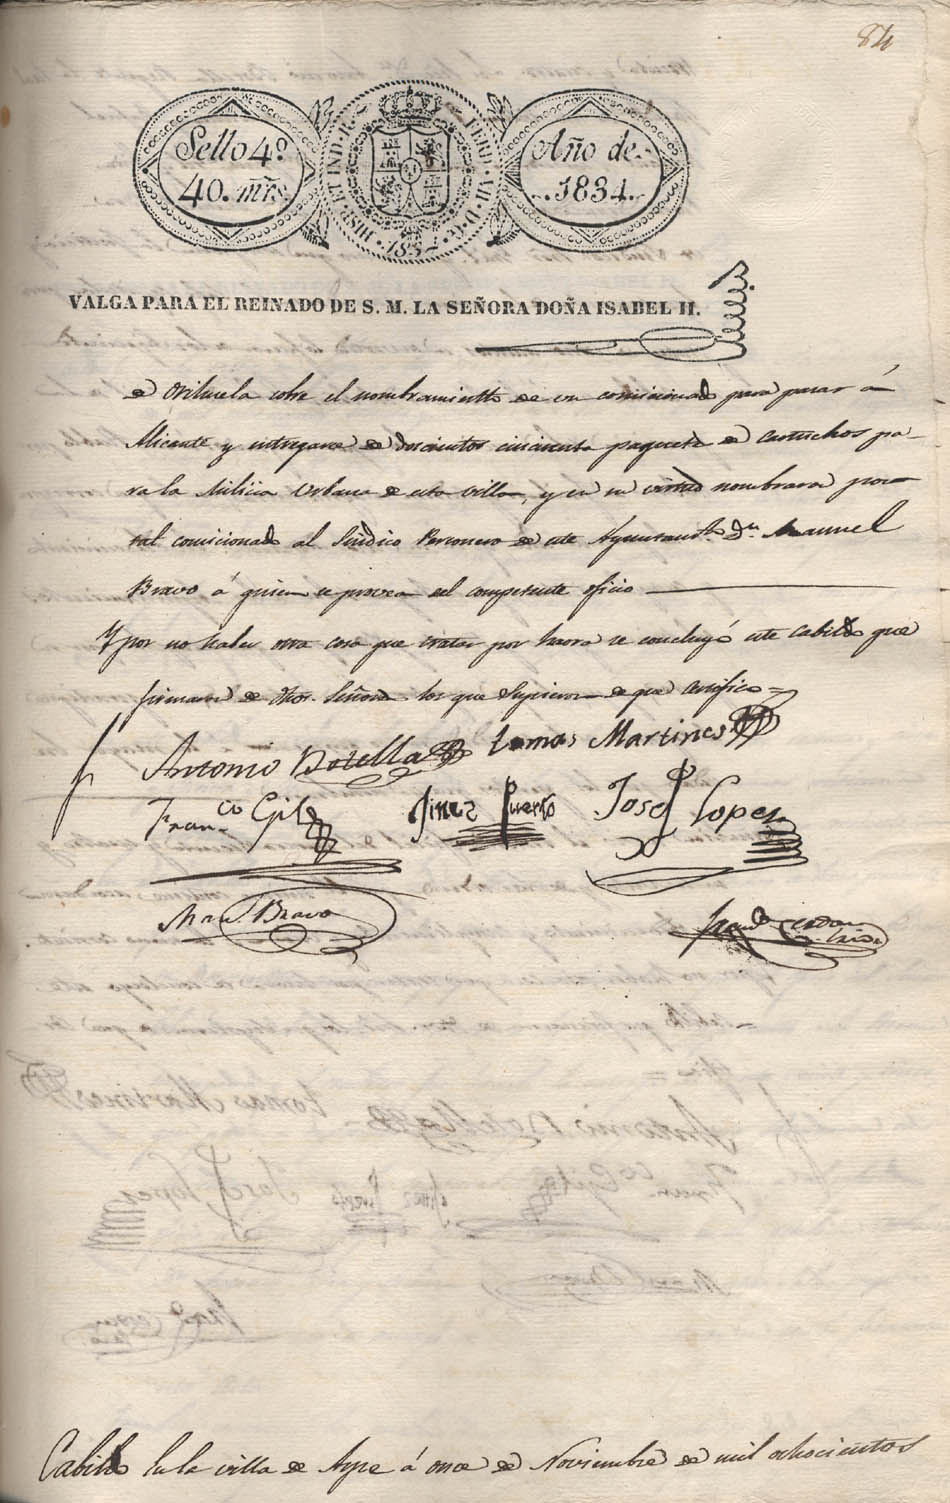 84
Sello 4º
40. mrs.
HISP. ET IND. R. FERD. VII. D. G. 1834
Año de
1834.
VALGA PARA EL REINADO DE S. M. LA SEÑORA DOÑA ISABEL II.
de Orihuela sobre el nombramiento de un comicionado para pasar á
Alicante y entregarse de doscientos cincuenta paquetes de cartuchos pa-
ra la Milicia Urbana de esta villa, y en su virtud nombraron por
tal comicionado al Sindico Personero de este Ayuntamto. Dn. Manuel
Bravo á quien se provea del competente oficio
Y por no haber otra cosa que tratar por haora se concluyó este Cabildo que
firmaron de dhos. Señores los que supieron de que certifico =
Antonio Botella Tomas Martines
Franco Gil Jines Puerto José Lopes
Manl. Bravo
Cabildo En la villa de Aspe á once de Noviembre de mil ochocientos